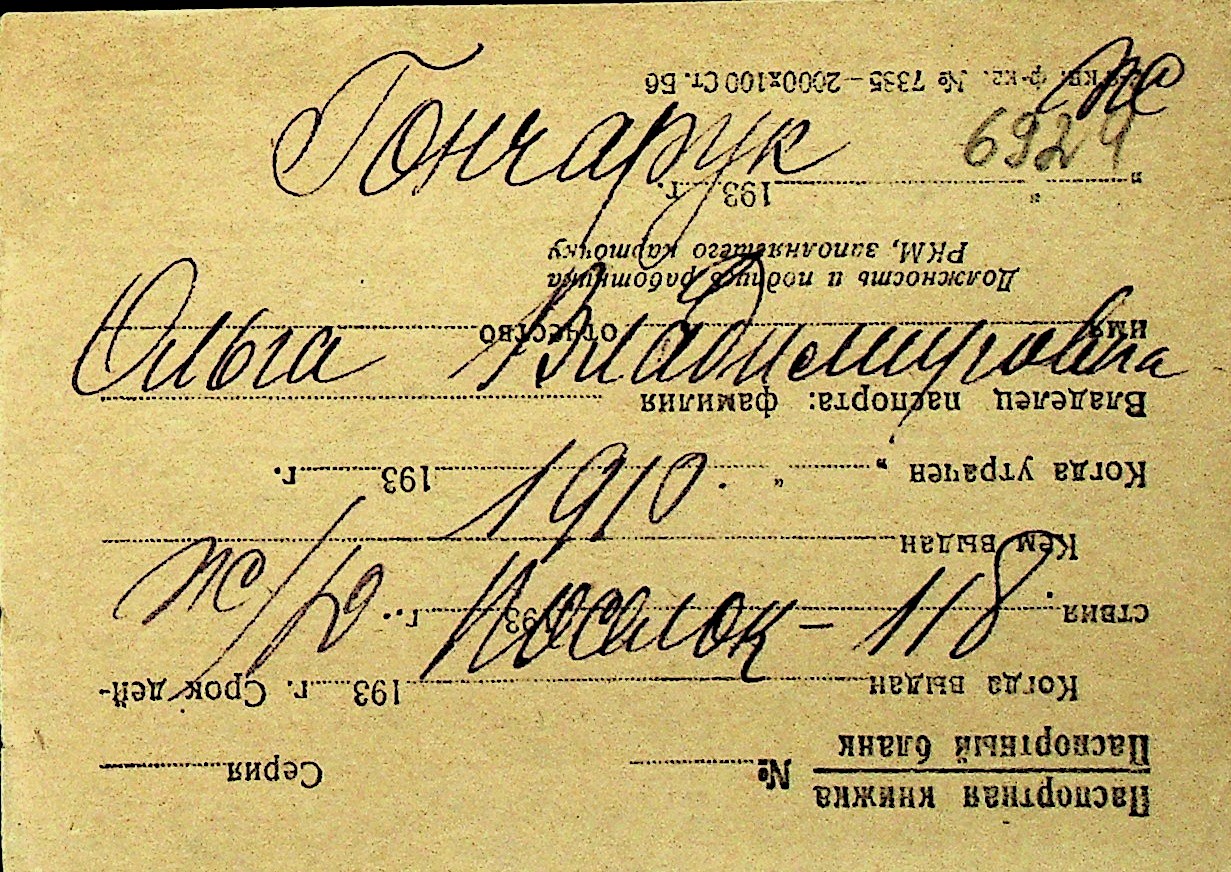 Гончарук
6924
Ольга Владимировна
1910.
ж/д Поселок - 118.
Паспортная книжка
Паспортный бланк
№ Серия
Когда выдан 193 г. Срок дей-
ствия 193 г.
Кем выдан
Когда утрачен „ “ 193 г.
Владелец паспорта: фамилия
имя отчество
Должность и подпись работника
РКМ, заполнявшего карточку
„ “ 193 г.
ф-кг. № 7335 — 2000х100 Ст. Бб